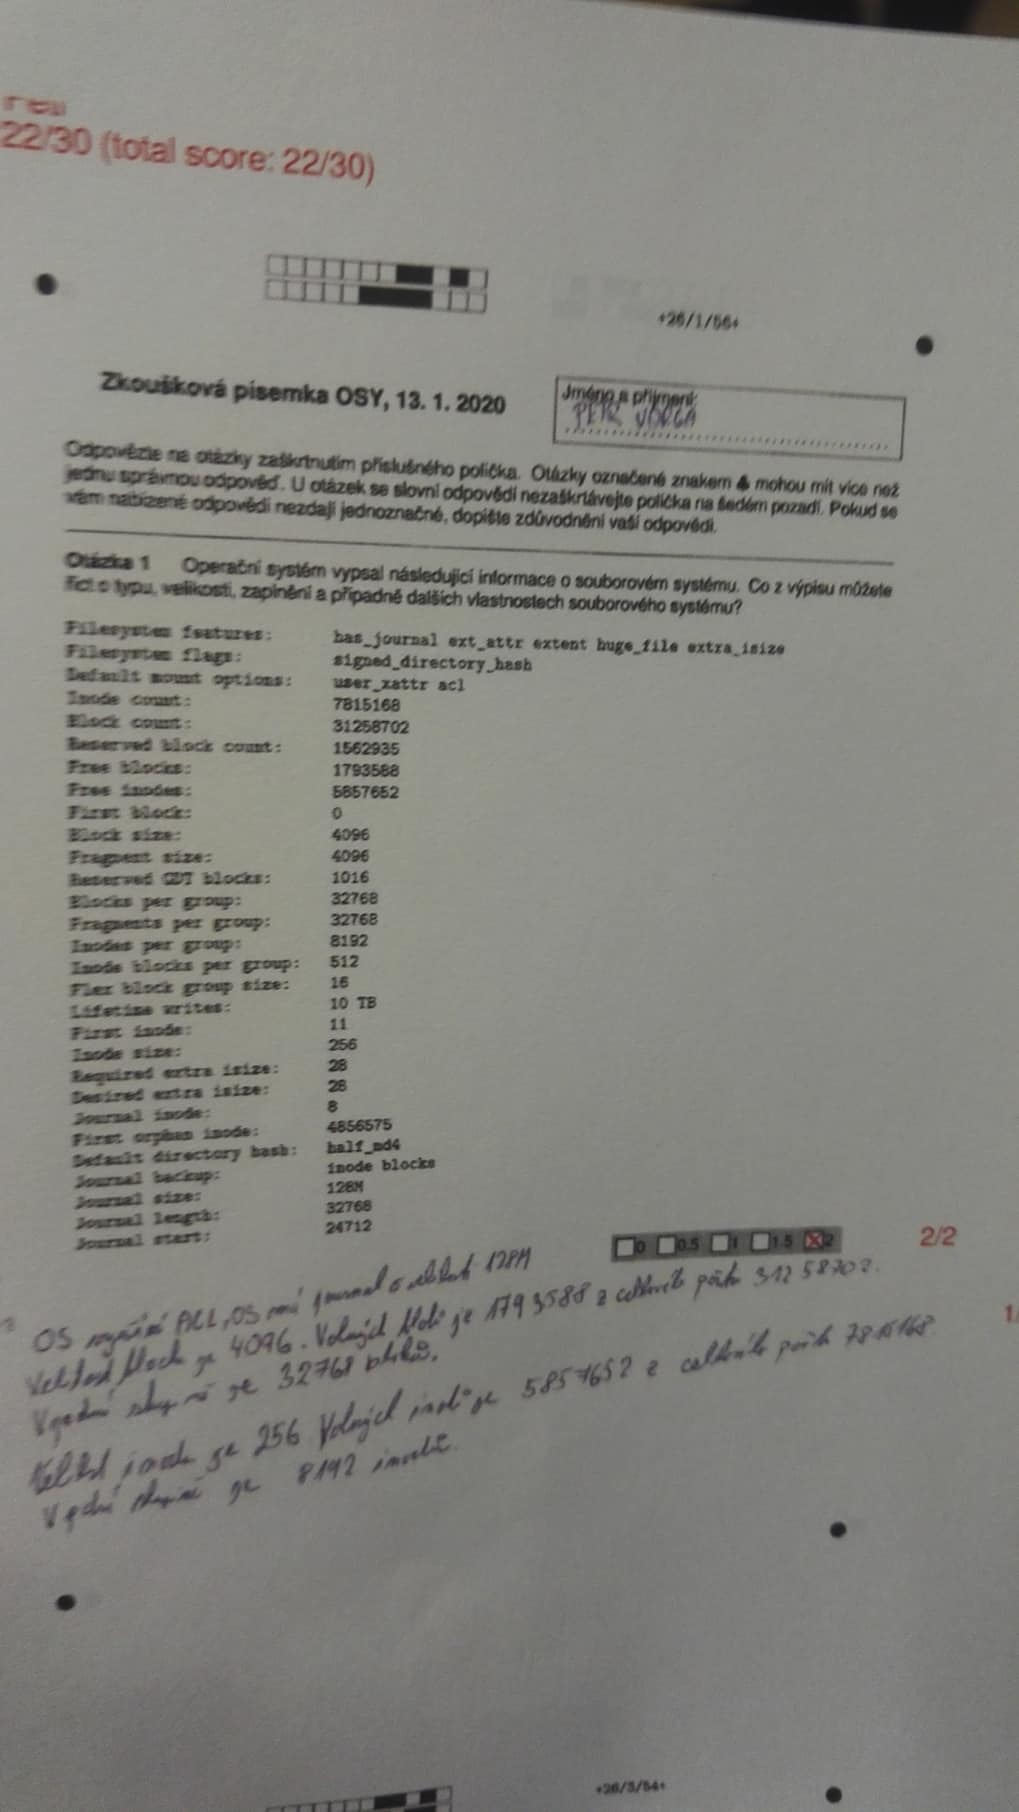 22/30 (total score: 22/30)
+26/1/56+
Zkoušková písemka OSY, 13. 1. 2020
Jméno a příjmení:
PETR
Odpovězte na otázky zaškrtnutím příslušného políčka. Otázky označené znakem ♣ mohou mít více než
jednu správnou odpověď. U otázek se slovní odpovědí nezaškrtávejte políčka na šedém pozadí. Pokud se
vám nabízené odpovědi nezdají jednoznačné, dopište zdůvodnění vaší odpovědi.
Otázka 1 Operační systém vypsal následující informace o souborovém systému. Co z výpisu můžete
říct o typu, velikosti, zaplnění a případně dalších vlastnostech souborového systému?
Filesystem features: has_journal ext_attr extent huge_file extra_isize
Filesystem flags: signed_directory_hash
Default mount options: user_xattr acl
Inode count: 7815168
Block count: 31258702
Reserved block count: 1562935
Free blocks: 1793588
Free inodes: 5857652
First block: 0
Block size: 4096
Fragment size: 4096
Reserved GDT blocks: 1016
Blocks per group: 32768
Fragments per group: 32768
Inodes per group: 8192
Inode blocks per group: 512
Flex block group size: 16
Lifetime writes: 10 TB
First inode: 11
Inode size: 256
Required extra isize: 28
Desired extra isize: 28
Journal inode: 8
First orphan inode: 4856575
Default directory hash: half_md4
Journal backup: inode blocks
Journal size: 128M
Journal length: 32768
Journal start: 24712
0 0.5 1 1.5 2
2/2
OS ACL, OS má journal o velikosti 128M
Velikost bloch je 4096. Volných bloků je 1793588 z celkového počtu 31258702.
V jedné skupině je 32768 bloků.
Velikost inodu je 256 Volných inodů je 5857652 z celkového počtu 7815168
V jedné skupině je 8192 inodů.
+26/3/54+